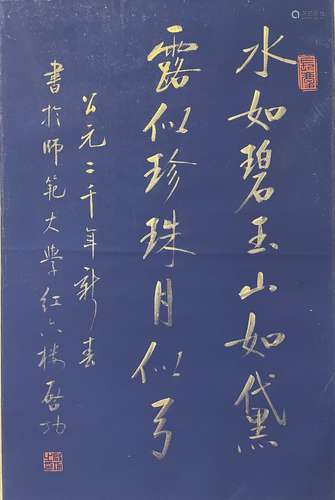 水如碧玉山如黛
露似珍珠月似弓
公元二千年新春
書於師範大學紅六樓啓功